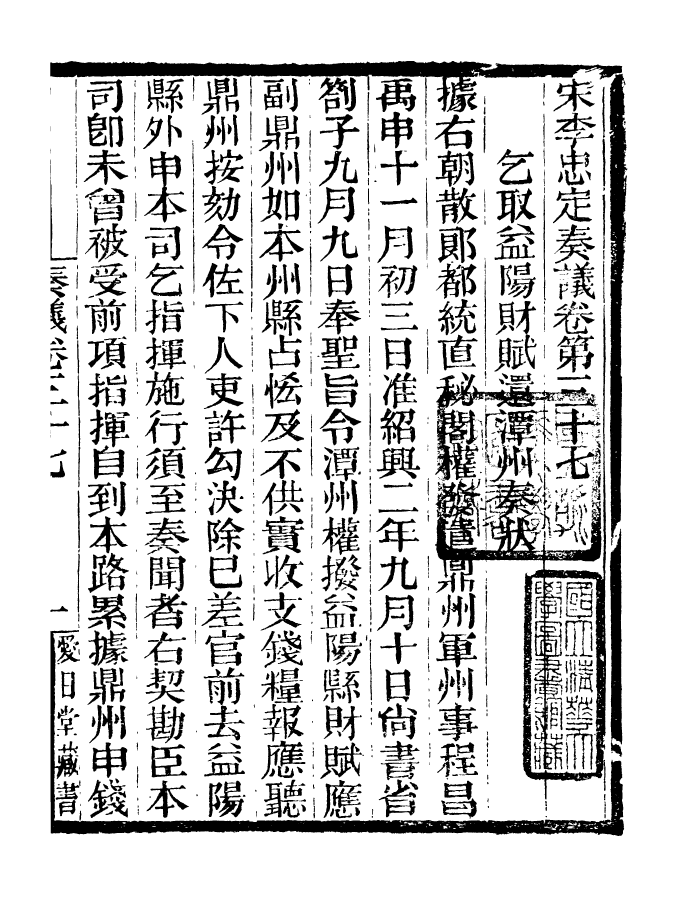 宋李忠定奏議卷第三十七
乞取益陽財賦還潭州奏狀
據右朝散郎都統直秘閣權發遣鼎州軍州事程昌
禹申十一月初三日准紹興二年九月十日尙書省
劄子九月九日奉聖旨令潭州權撥益陽縣財賦應
副鼎州如本州縣占恡及不供實收支錢糧報應聽
鼎州按劾令佐下人吏許勾決除已差官前去益陽
縣外申本司乞指揮施行須至奏聞者右契勘臣本
司卽未曾被受前項指揮自到本路累據鼎州申錢
奏議卷三十七
一
愛日堂藏書